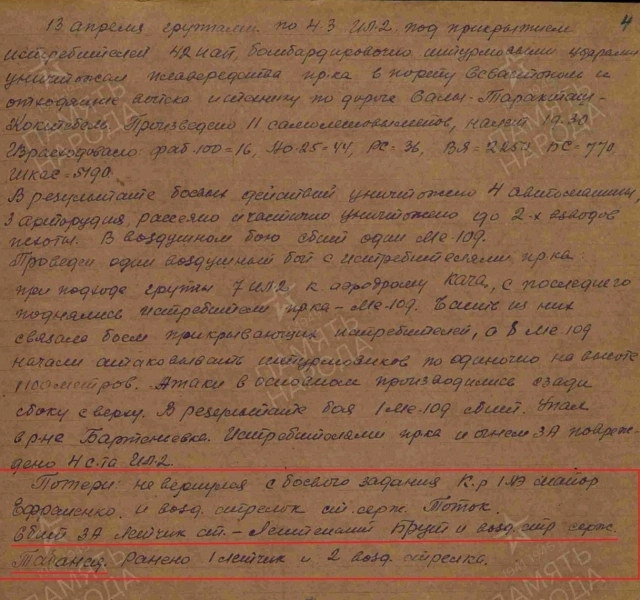 4
13 апреля группами по 4 3 ИЛ-2 под прикрытием
истребителей 42 иап, бомбардировочно штурмовыми ударами
уничтожал плавсредства пр-ка в порту Севастополь и
отходящие войска и технику по дороге Салы-Таракташ-
Коктебель. Произведено 11 самолетовылетов, налет
Израсходовано: фаб-100=16, АО-25=44, РС=36, ВЯ= БС=770,
Шкас=5190.
В результате боевых действий уничтожено 4 автомашины,
3 арторудия, рассеяно и частично уничтожено до 2-х взводов
пехоты. В воздушном бою сбит один Ме-109.
Проведен один воздушный бой с истребителями пр-ка:
при подходе группы 7 ИЛ-2 к аэродрому Кача, с последнего
поднялись истребители пр-ка - Ме-109. Часть из них
связала боем прикрывающих истребителей, а 8 Ме-109
начали атаковывать штурмовиков по одиночно на высоте
1100 метров. Атаки в основном производились сзади
сбоку сверху. В результате боя 1 Ме-109 сбит. Упал
в р-не Бартеневка. Истребителями пр-ка и огнем ЗА повреж-
дено 4 с-та ИЛ-2.
Потери: не вернулся с боевого задания К-р 1 АЭ майор
Ефраненко и возд. стрелок ст. серж. Поток.
сбит ЗА летчик ст.-лейтенант Брут и возд. стр. серж.
Таганец. Ранено 1 летчик и 2 возд. стрелка.
ПАМЯТЬ
НАРОДА